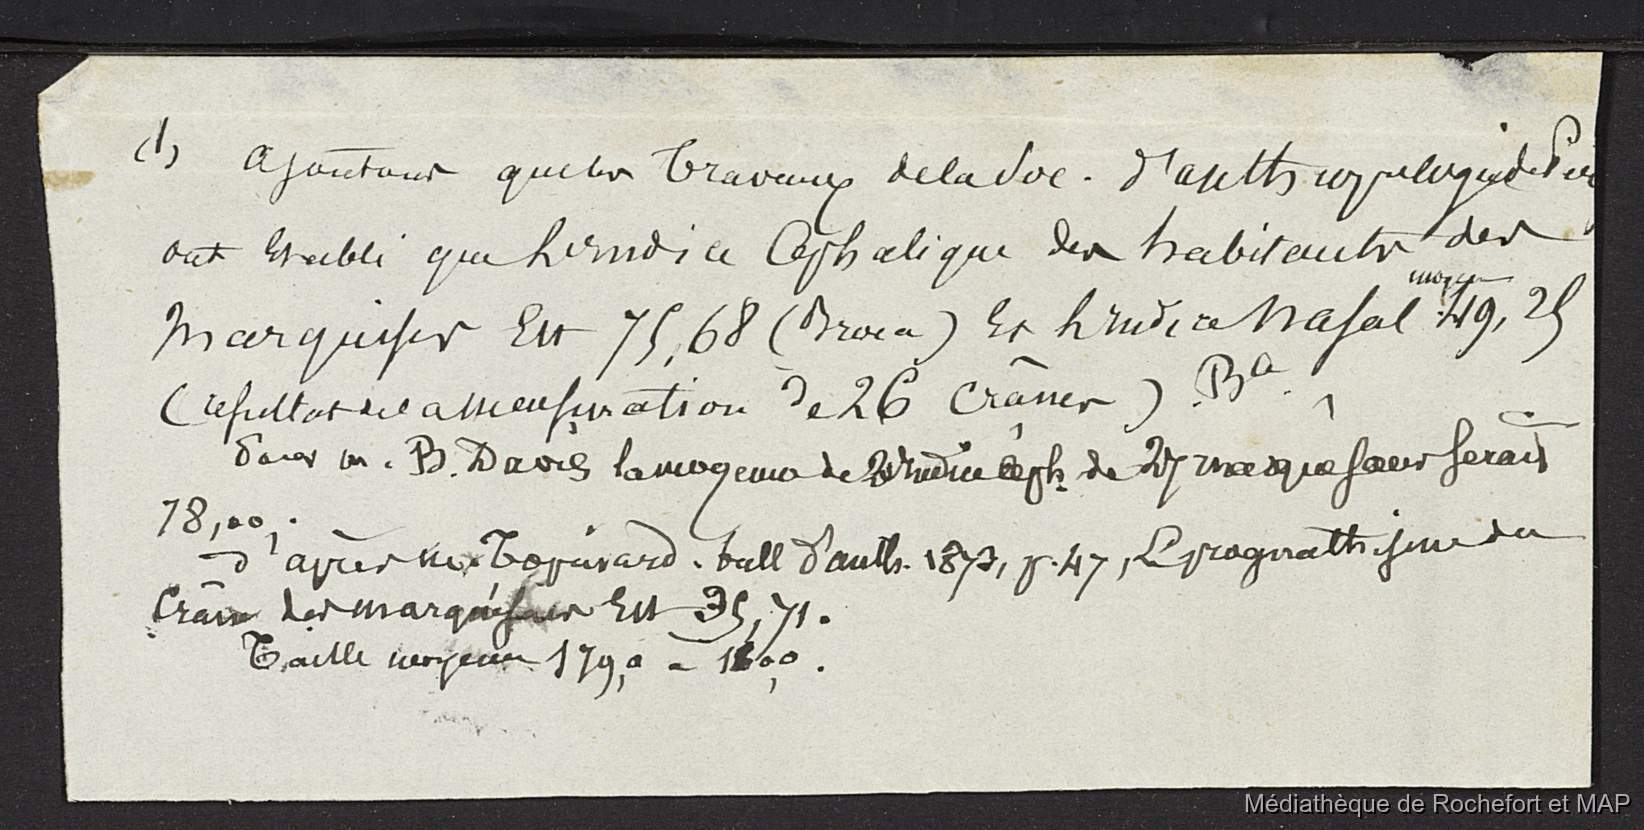 (1) ajoutons que les travaux de la Soc. d'anthropologie de Paris
ont établi que l'indice Cephalique des habitants des
Marquises Est 75,68 (Broca) Et l'indice Nasal moyen 49,25
(resultat de la mensuration de 26 Crânes) Bra.
d'après m. B. Davis la moyenne de l'indice Ceph. de 27 marquésans serait
78,00.
d'après m. Topinard. bull d'anth. 1873, p. 47, Le prognathisme du
Crâne des marquésans Est 35,71.
Taille moyenne 179,0 a 180,0.
Médiathèque de Rochefort et MAP